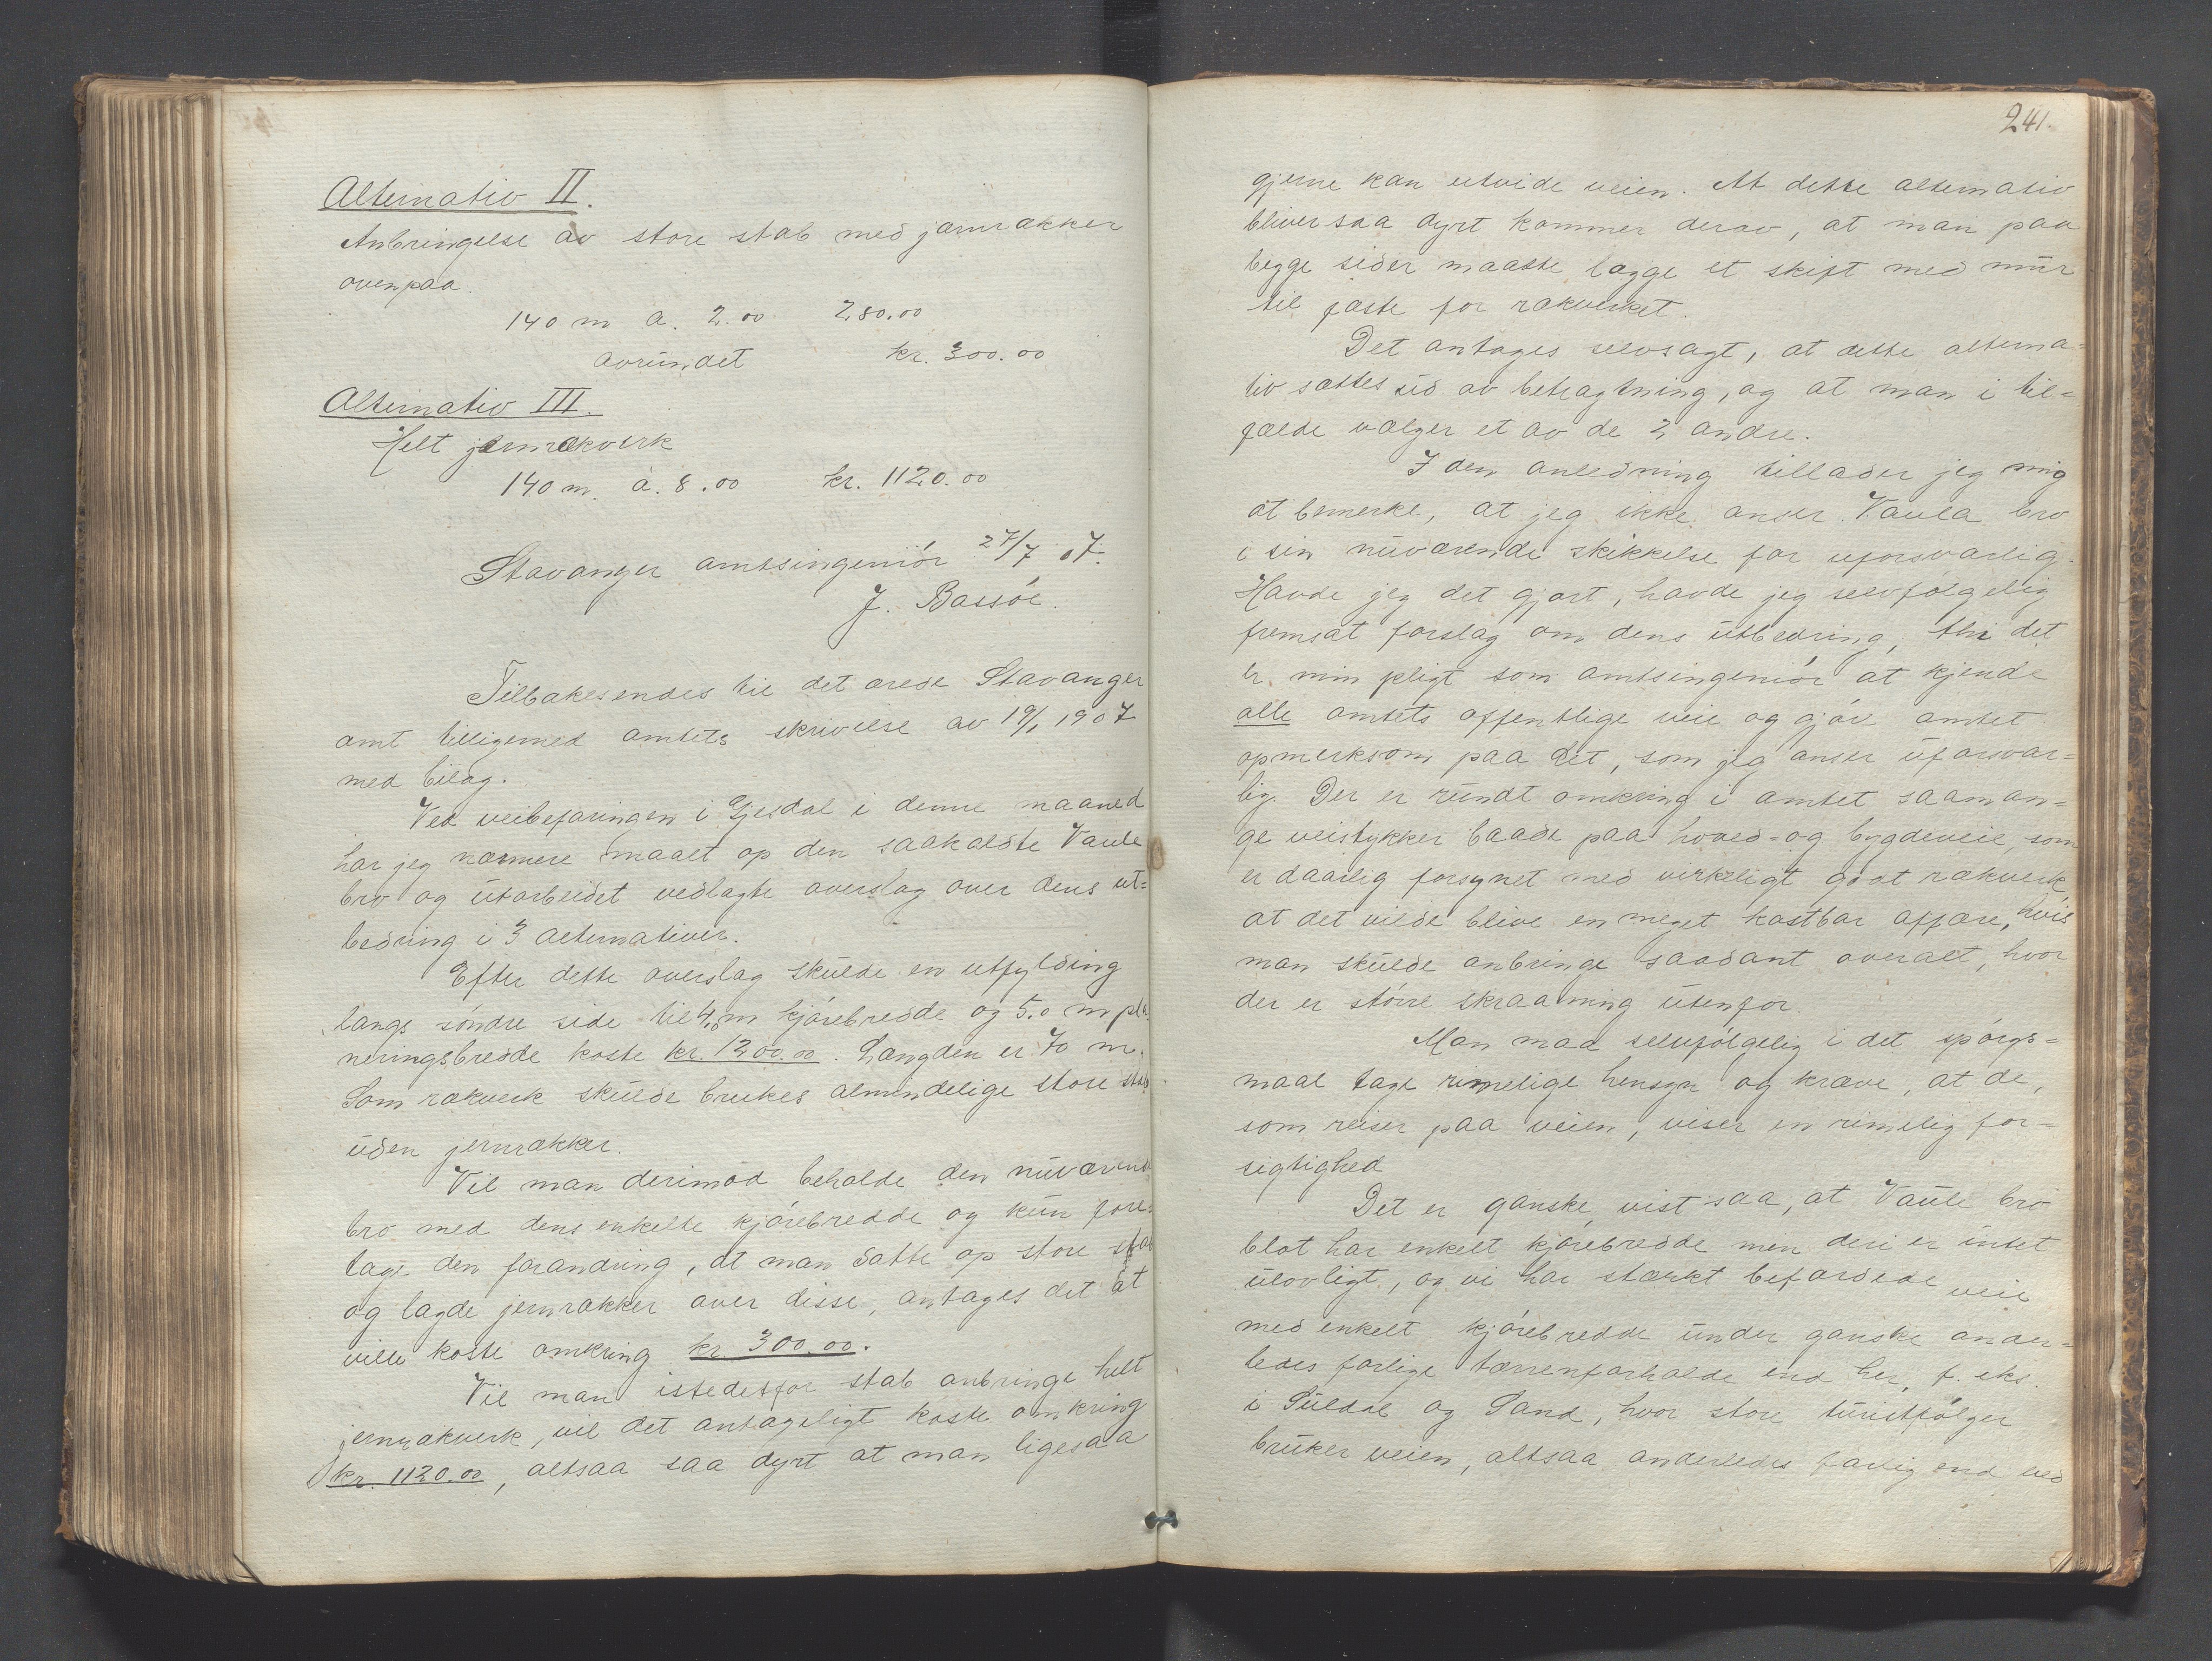 Alternativ II.
Anbringelse av store stab med jærnrækker
ovenpaa.
140 m a. 2.00 280.00
avrundet kr. 300.00
Alternativ III.
Helt jernrækverk
140 m. á. 8.00 kr. 1120.00
Stavanger amtsingeniór 27/7 07.
J. Bassóe.
Tilbakesendes til det ærede Stavanger
amt tilligemed amtets skrivelse av 19/1 1907
med bilag.
Ved veibefaringen i Gjesdal i denne maaned
har jeg nærmere maalt op den saakaldte Vaule
bro og utarbeidet vedlagte overslag over dens ut=
bedring i 3 alternativer.
Efter dette overslag skulde en utfylding
langs søndre side til 4,0 m kjørebredde og 5.0 m pla
neringsbredde koste kr. 1200.00. Længden er 70 m.
Som rækverk skulde brukes almindelige store stab
uden jernrækker.
Vil man derimod beholde den nuværende
bro med dens enkelte kjørebredde og kun fore=
tage den forandring, at man satte op store stab
og lagde jernrækker over disse, antages det at
ville koste omkring kr 300.00.
Vil man istedetfor stab anbringe helt
jernrækverk, vil det antageligt koste omkring
kr. 1120.00, altsaa saa dyrt at man ligesaa
241.
gjerne kan utvide veien. At dette alternativ
bliver saa dyrt kommer derav, at man paa
begge sider maatte lægge et skift med mur
til fæste for rækverket.
Det antages selvsagt, at dette alterna=
tiv sættes ud av betragtning, og at man i til=
fælde vælger et av de 2 andre.
I den anledning tillader jeg mig
at bemerke, at jeg ikke anser Vaula bro
i sin nuværende skikkelse for uforsvarlig.
Havde jeg det gjort, havde jeg selvfølgelig
fremsat forslag om dens utbedring, thi det
er min pligt som amtsingeniør at kjende
alle amtets offentlige veie og gjøre amtet
opmerksom paa det, som jeg anser uforsvar=
lig. Der er rundt omkring i amtet saa man=
ge veistykker baade paa hoved= og bygdeveie, som
er daarlig forsynet med virkeligt godt rækverk,
at det vilde blive en meget kostbar affære, hvis
man skulde anbringe saadant overalt, hvor
der er større skraaning utenfor.
Man maa selvfølgelig i det spørgs=
maal tage rimelige hensyn og kræve, at de,
som reiser paa veien, viser en rimelig for=
sigtighed
Det er ganske vist saa, at Vaule bro
blot har enkelt kjørebredde men deri er intet
ulovligt, og vi har stærkt befærdede veie
med enkelt kjørebredde under ganske ander=
ledes farlige tærrenforholde end her, f. eks.
i Suldal og Sand, hvor store turistfølger
bruker veien, altsaa anderledes farlig end ved